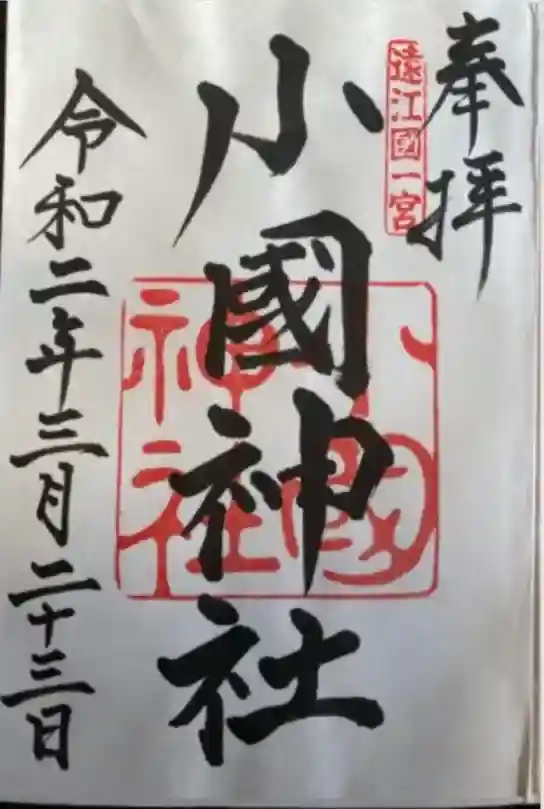 奉拝
遠江國一宮
小國神社
小國
神社
令和二年三月二十三日